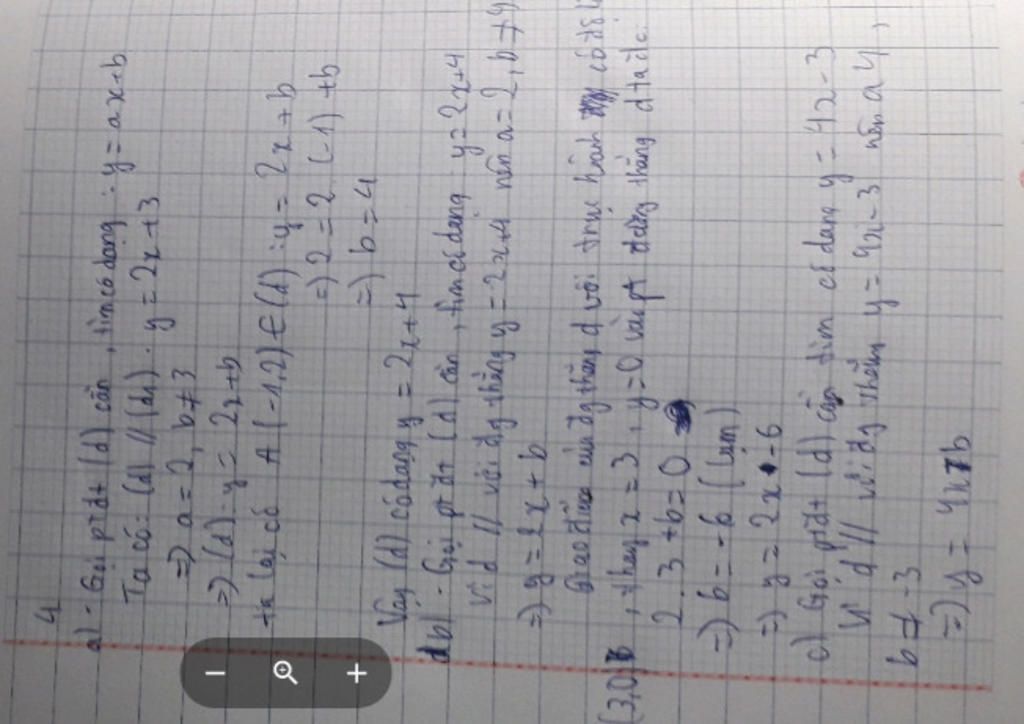 4
a) - Gọi ptđt (d) cần tìm có dạng: y = ax+b
Ta có: (d) // (d1): y = 2x+3
=) a = 2, b≠3
=) (d): y = 2x+b
ta lại có A(-1,2) ∈ (d): y = 2x+b
=) 2 = 2.(-1)+b
=) b = 4
Vậy (d) có dạng y = 2x+4
b) - Gọi ptđt (d) cần, tìm có dạng y = 2x+4
Vì d // với đg thẳng y = 2x+4 nên a = 2, b ≠ 4
=) y = 2x+b
Giao điểm của đg thẳng d với trục hoành có tđ là
(3,0), thay x = 3, y = 0 vào pt đường thẳng d ta đc:
2.3+b=0
=) b = -6 (t/m)
=) y = 2x-6
c) Gọi ptđt (d) cần tìm có dạng y = 4x-3
Vì d // với đg thẳng y = 4x-3 nên a 4,
b ≠ -3
=) y = 4x+b